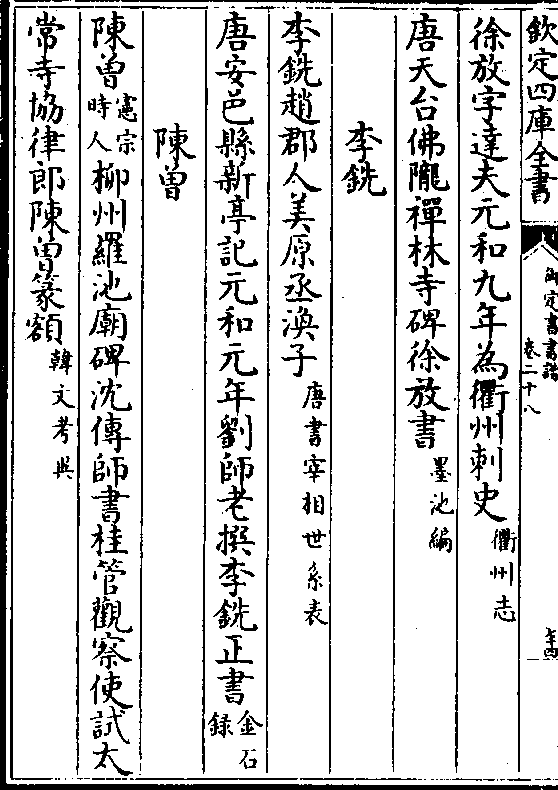 欽定四庫全書
御定書畫譜
卷二十八
徐放字達夫元和九年為衢州刺史衢州志
唐天台佛隴禪林寺碑徐放書墨池編
李銑
李銑趙郡人美原丞渙子唐書宰相世系表
唐安邑縣新亭記元和元年劉師老撰李銑正書金石錄
陳曾
陳曾憲宗時人柳州羅池廟碑沈傳師書桂管觀察使試太
常寺協律郎陳曾篆額韓文考異